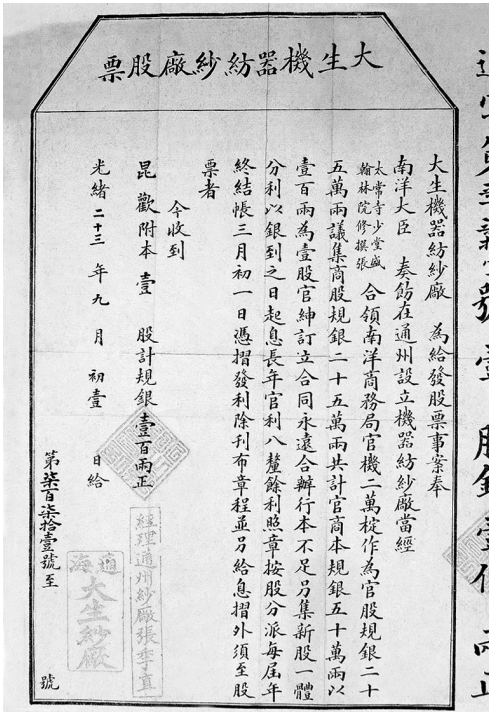 大生機器紡紗廠股票
大生機器紡紗廠 為給發股票事案奉
南洋大臣 奏飭在通州設立機器紡紗廠當經
太常寺少堂盛
翰林院修撰張
合領南洋商務局官機二萬梃作為官股規銀二十
五萬兩議集商股規銀二十五萬兩共計官商本規銀五十萬兩以
壹百兩為壹股官紳訂立合同永遠合辦行本不足另集新股一體
分利以銀到之日起息長年官利八釐餘利照章按股分派每屆年
終結帳三月初一日憑摺發利除刊布章程並另給息摺外須至股
票者
今收到
昆歡附本 壹 股計規銀 壹百兩正
光緒 二十三 年 九 月 初壹 日給
經理通州紗廠張季直
通海
大生紗廠
第柒百柒拾壹號至 號